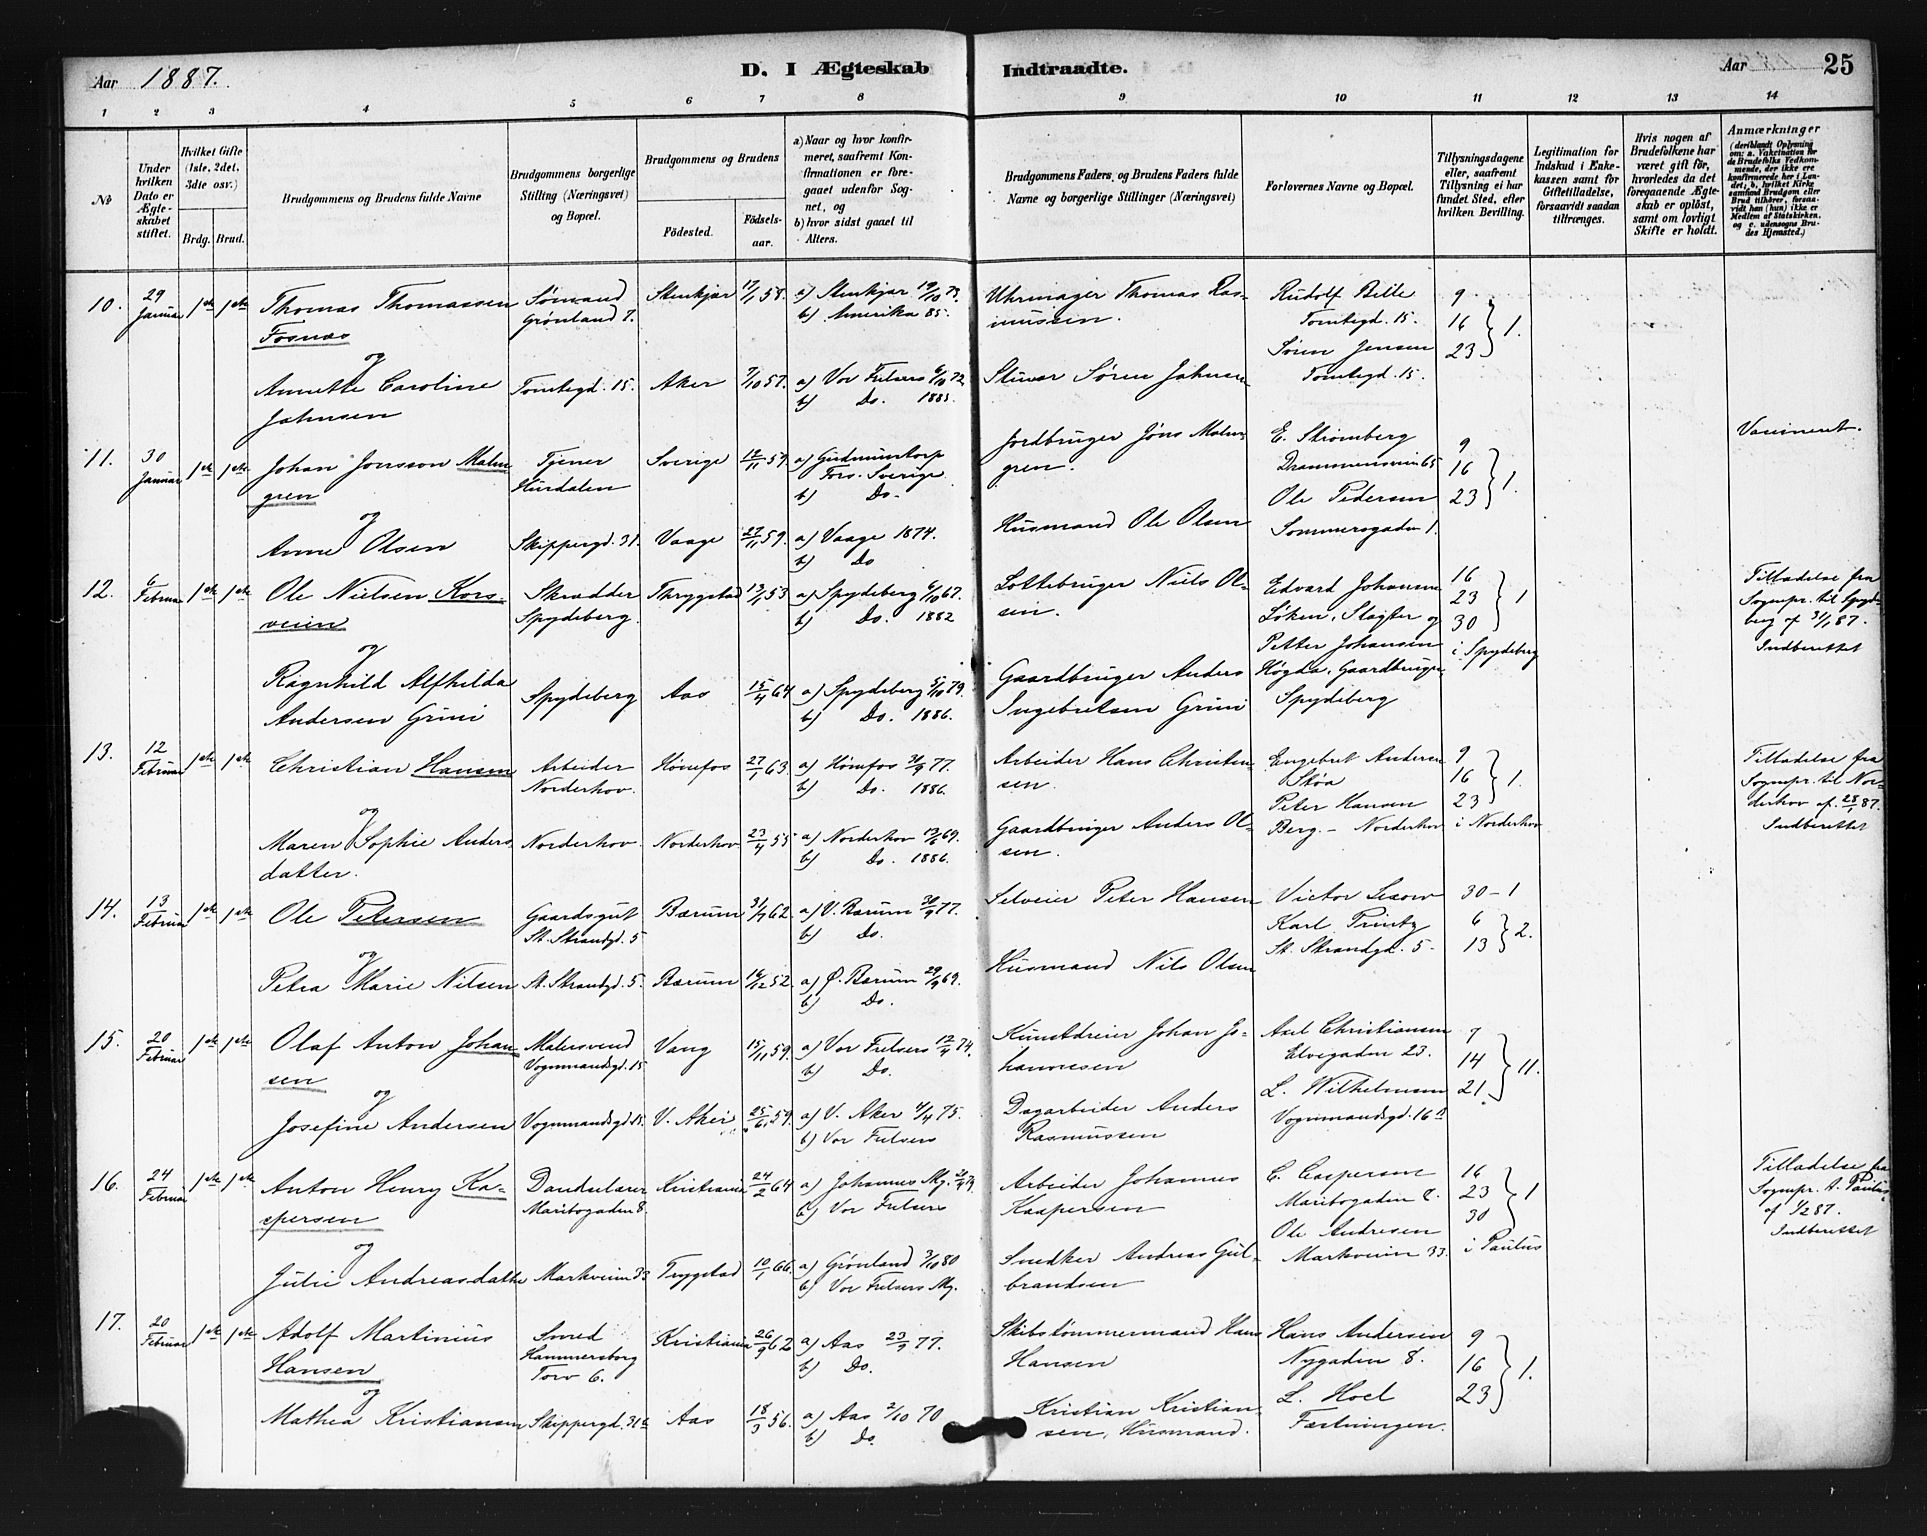 Aar 1887.
D. I Ægteskab Indtraadte.
Aar 25
1 2 3 4 5 6 7 8 9 10 11 12 13 14
No
Under hvilken Dato er Ægteskabet stiftet.
Hvilket Gifte (1ste, 2det, 3die osv.)
Brdg. Brud.
Brudgommens og Brudens fulde Navne
Brudgommens borgerlige Stilling (Næringsvei) og Bopæl.
Brudgommens og Brudens
Fødested. Fødselsaar.
a) Naar og hvor konfirmeret, saafremt Konfirmationen er foregaaet udenfor Sognet, og
b) hvor sidst gaaet til Alters.
Brudgommens Faders, og Brudens Faders fulde Navne og borgerlige Stillinger (Næringsvei)
Forlovernes Navne og Bopæl.
Tillysningsdagene eller, saafremt Tillysning ei har fundet Sted, efter hvilken Bevilling.
Legitimation for Indskud i Enkekassen samt for Giftetilladelse, forsaavidt saadan tiltrænges.
Hvis nogen af Brudefolkene har været gift før, hvorledes da det foregaaende Ægteskab er opløst, samt om lovligt Skifte er holdt.
Anmærkninger (deriblandt Oplysning om: a. Vakcination for de Brudefolks Vedkommende, der ikke ere konfirmerede her i Landet; b. hvilket Kirkesamfund Brudgom eller Brud tilhører, forsaavidt han (hun) ikke er Medlem af Statskirken, og c. udensogns Brudes Hjemsted.)
10. 29 Januar 1ste 1ste Thomas Thomassen Fosnæs Sømand Grønland 7. Stenkjær 17/1 58. a) Stenkjær 19/10 73. b) Amerika 85. Uhrmager Thomas Rasmussen. Rudolf Bille Tomtegd. 15. Søren Jensen Tomtegd. 15. 9 16 23 } 1.
og
Annette Caroline Johnsen Tomtegd. 15. Aker 7/10 57. a) Vor Frelsers 6/10 72 b) Do. 1885. Stuer Søren Johnsen
11. 30 Januar 1ste 1ste Johan Jonsson Malmgren Tjener Hurdalen Sverige 12/11 59. a) Gudmuntorp Fors. Sverige b) Do. Jordbruger Jöns Malmgren. E. Strømberg Drammensvein 65 Ole Pedersen Sommerogaden 1. 9 16 23 } 1. Vaccineret.
og
Anne Olsen Skippergd. 31. Vaage 27/11 59. a) Vaage 1874. b) Do Husmand Ole Olsen
12. 6 Februar 1ste 1ste Ole Nielsen Korsveien Skrædder Spydeberg. Thrygstad 13/4 53 a) Spydeberg 6/10 67. b) Do. 1882 Lottebruger Niels Olsen. Edvard Johansen Löken, Slagter og Petter Johansen Högda, Gaardbruger Spydeberg 16 23 30 } 1 i Spydeberg Tilladelse fra Sognepr. til Spydberg af 31/1 87. Indberettet
og
Ragnhild Alfhilda Andersen Grini Spydeberg Aas 15/4 64 a) Spydeberg 5/10 79. b) Do. 1886. Gaardbruger Anders Ingebretsen Grini
13. 12 Februar 1ste 1ste Christian Hansen Arbeider Norderhov. Hønefos 27/1 63. a) Hønefos 30/9 77. b) Do. 1886. Arbeider Hans Christensen. Engebret Andersen Støa Peter Hansen Berg. - Norderhov 9 16 23 } 1. i Norderhov Tilladelse fra Sognepr. til Norderhov af. 28/1 87. Indberettet
og
Maren Sophie Andersdatter. Norderhov. Norderhov. 23/4 55 a) Norderhov 13/6 69. b) Do. 1886. Gaardbruger Anders Olsen.
14. 13 Februar 1ste 1ste Ole Petersen Gaardsgut St. Strandgd. 5 Bærum 31/7 62 a) V. Bærum 30/9 77. b) Do. Selveier Peter Hansen Victor Karl St. Strandgd. 5. 30 - 1 6 13 } 2.
og
Petra Marie Nilsen St. Strandgd. 5 Bærum 16/12 52 a) Ø. Bærum 29/9 69. b) Do. Husmand Nils Olsen
15. 20 Februar 1ste 1ste Olaf Anton Johansen Malersvend Vognmandsgd. 15 Vang 15/11 59. a) Vor Frelsers 12/4 74. b) Do. Kunstdreier Johan Johannesen Axel Christiansen Elvegaden 23. L. Wilhelmsen Vognmandsgd. 16 B 7 14 21 } 11.
og
Josefine Andersen Vognmandsgd 15. V. Aker 25/6 59. a) V. Aker 4/4 75. b) Vor Frelsers Dagarbeider Anders Rasmussen
16. 24 Februar 1ste 1ste Anton Henry Kaspersen Maribogaden 8. Kristiania 24/2 64 a) Johannes Mg. b) Vor Frelsers Arbeider Johannes Kaspersen C. Caspersen Maribogaden 8. Ole Andresen Markveien 33. 16 23 30 } 1 i Paulus Tilladelse fra Sognepr. t. Paulus af 1/2 87. Indberettet
og
Julie Andreasdatter Markveien 33 Trygstad 10/1 66. a) Grønland 3/10 80 b) Vor Frelsers Mg. Snedker Andreas Gulbrandsen
17. 20 Februar 1ste 1ste Adolf Martinius Hansen Smed Hammersborg Torv 6. Kristiania 26/9 62 a) Aas 23/9 77. b) Do. Skibstömmermand Hans Hansen Hans Andersen Nygaden 8. L. Hoel Fæstningen. 9 16 23 } 1.
og
Mathea Kristiansen Skippergd. 31 b Aas 18/3 56. a) Aas 2/10 70 b) Do. Kristian Kristiansen, Husmand.